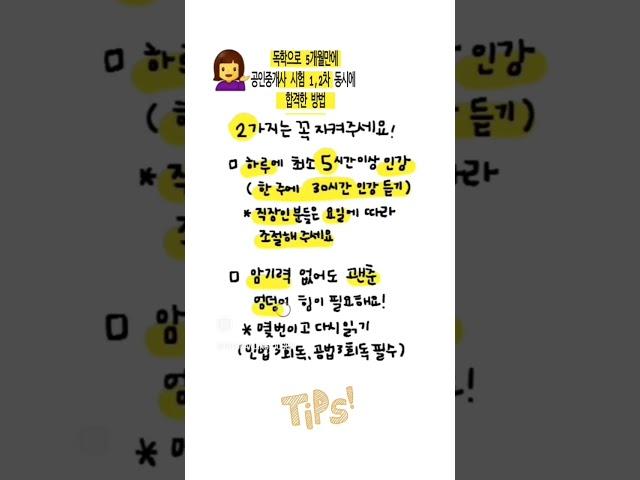 독학으로 5개월만에
공인중개사 시험 1,2차 동시에
합격한 방법
2가지는 꼭 지켜주세요!
하루에 최소 5시간이상 인강
(한 주에 30시간 인강 듣기)
* 직장인분들은 요일에 따라
조절해 주세요
암기력 없어도 괜춘
엉덩이 힘이 필요해요!
* 몇번이고 다시 읽기
(민법 9회독, 공법 3회독 필수)
TiPS!